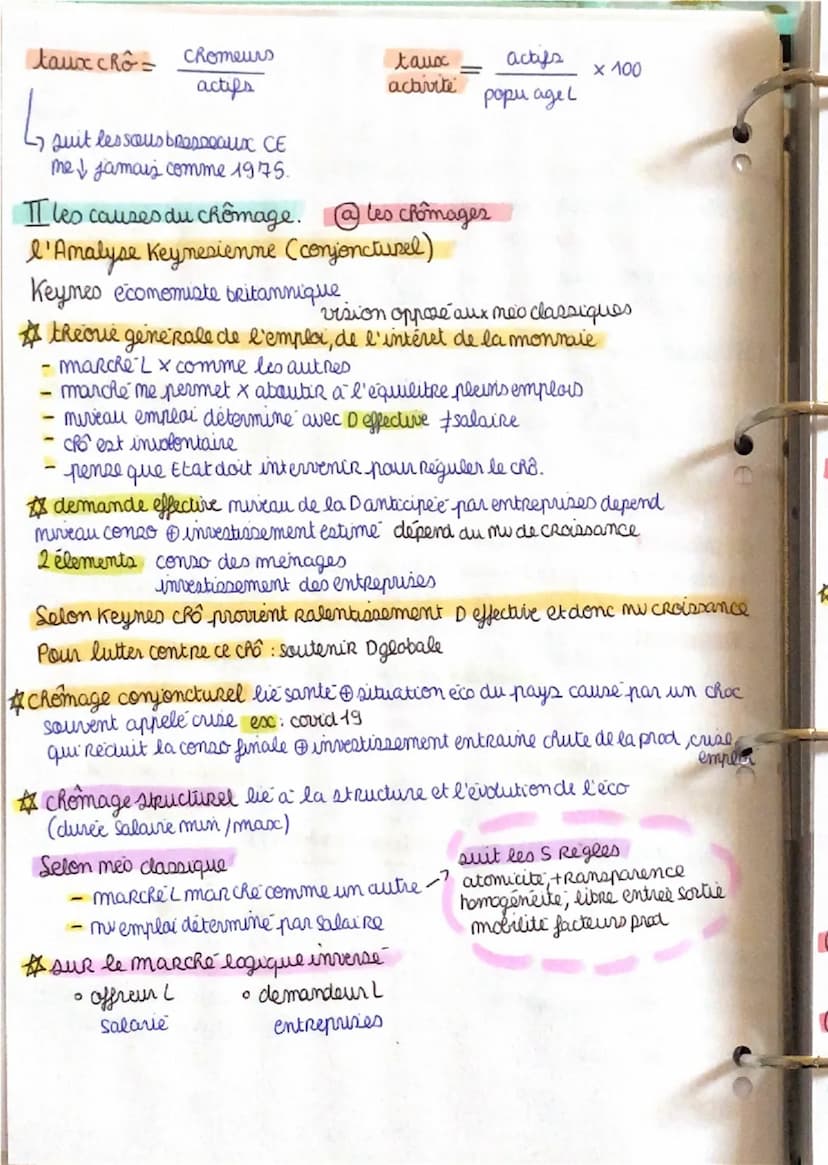 taux chô = chomeurs / actifs
taux activité = actifs / popu age L × 100
↳ suit les soubresseaux CE
me ↓ jamais comme 1975.
II les causes du chômage. ⓐ les chômages
l'Analyse Keynesienne (conjoncturel)
Keynes économiste britannique
vision opposé aux néo classiques
☆ théorie générale de l'emploi, de l'intéret de la monnaie
- marché L × comme les autres
- marché ne permet × aboutir à l'équilitre pleins emplois
- niveau emploi déterminé avec D effective ≠ salaire
- chô est involontaire
- pense que Etat doit intervenir pour réguler le chô.
☆ demande effective niveau de la D anticipée par entreprises depend
niveau conso ⊕ investissement estimé dépend du nv de croissance
2 élements conso des ménages
investissement des entreprises
Selon Keynes chô provient ralentissement D effective et donc nv croissance
Pour lutter contre ce chô : soutenir D globale
☆ chômage conjoncturel lié santé ⊕ situation éco du pays causé par un choc
souvent appelé crise ex : covid 19
qui réduit la conso finale ⊕ investissement entraine chute de la prod, crise
emploi
☆ chômage structurel lié à la structure et l'évolution de l'éco
(durée salaire min / max)
Selon néo classique
- marché L marche comme un autre →
- nv emploi déterminé par salaire
suit les 5 règles
atomicité, transparence
homgénéité, libre entrée sortie
mobilité facteurs prod
☆ sur le marché logique inversé
° offreur L ° demandeur L
salarié entreprises